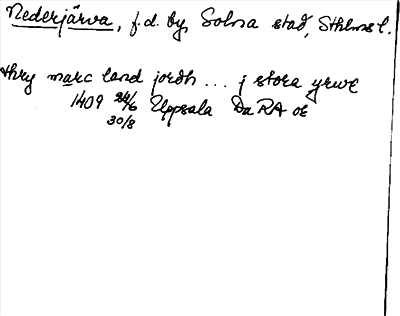 Nederjärva, f.d. by, Solna stad, Sthlms l.
thry marc land jordh ... j stora yrwe
1409 24/6 Uppsala Da RA or
30/8